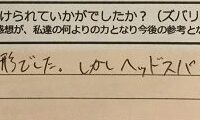 けられていかがでしたか？（ズバリ
感想が、私達の何よりの力となり今後の参考とな
形でした。しかしヘッドスパ